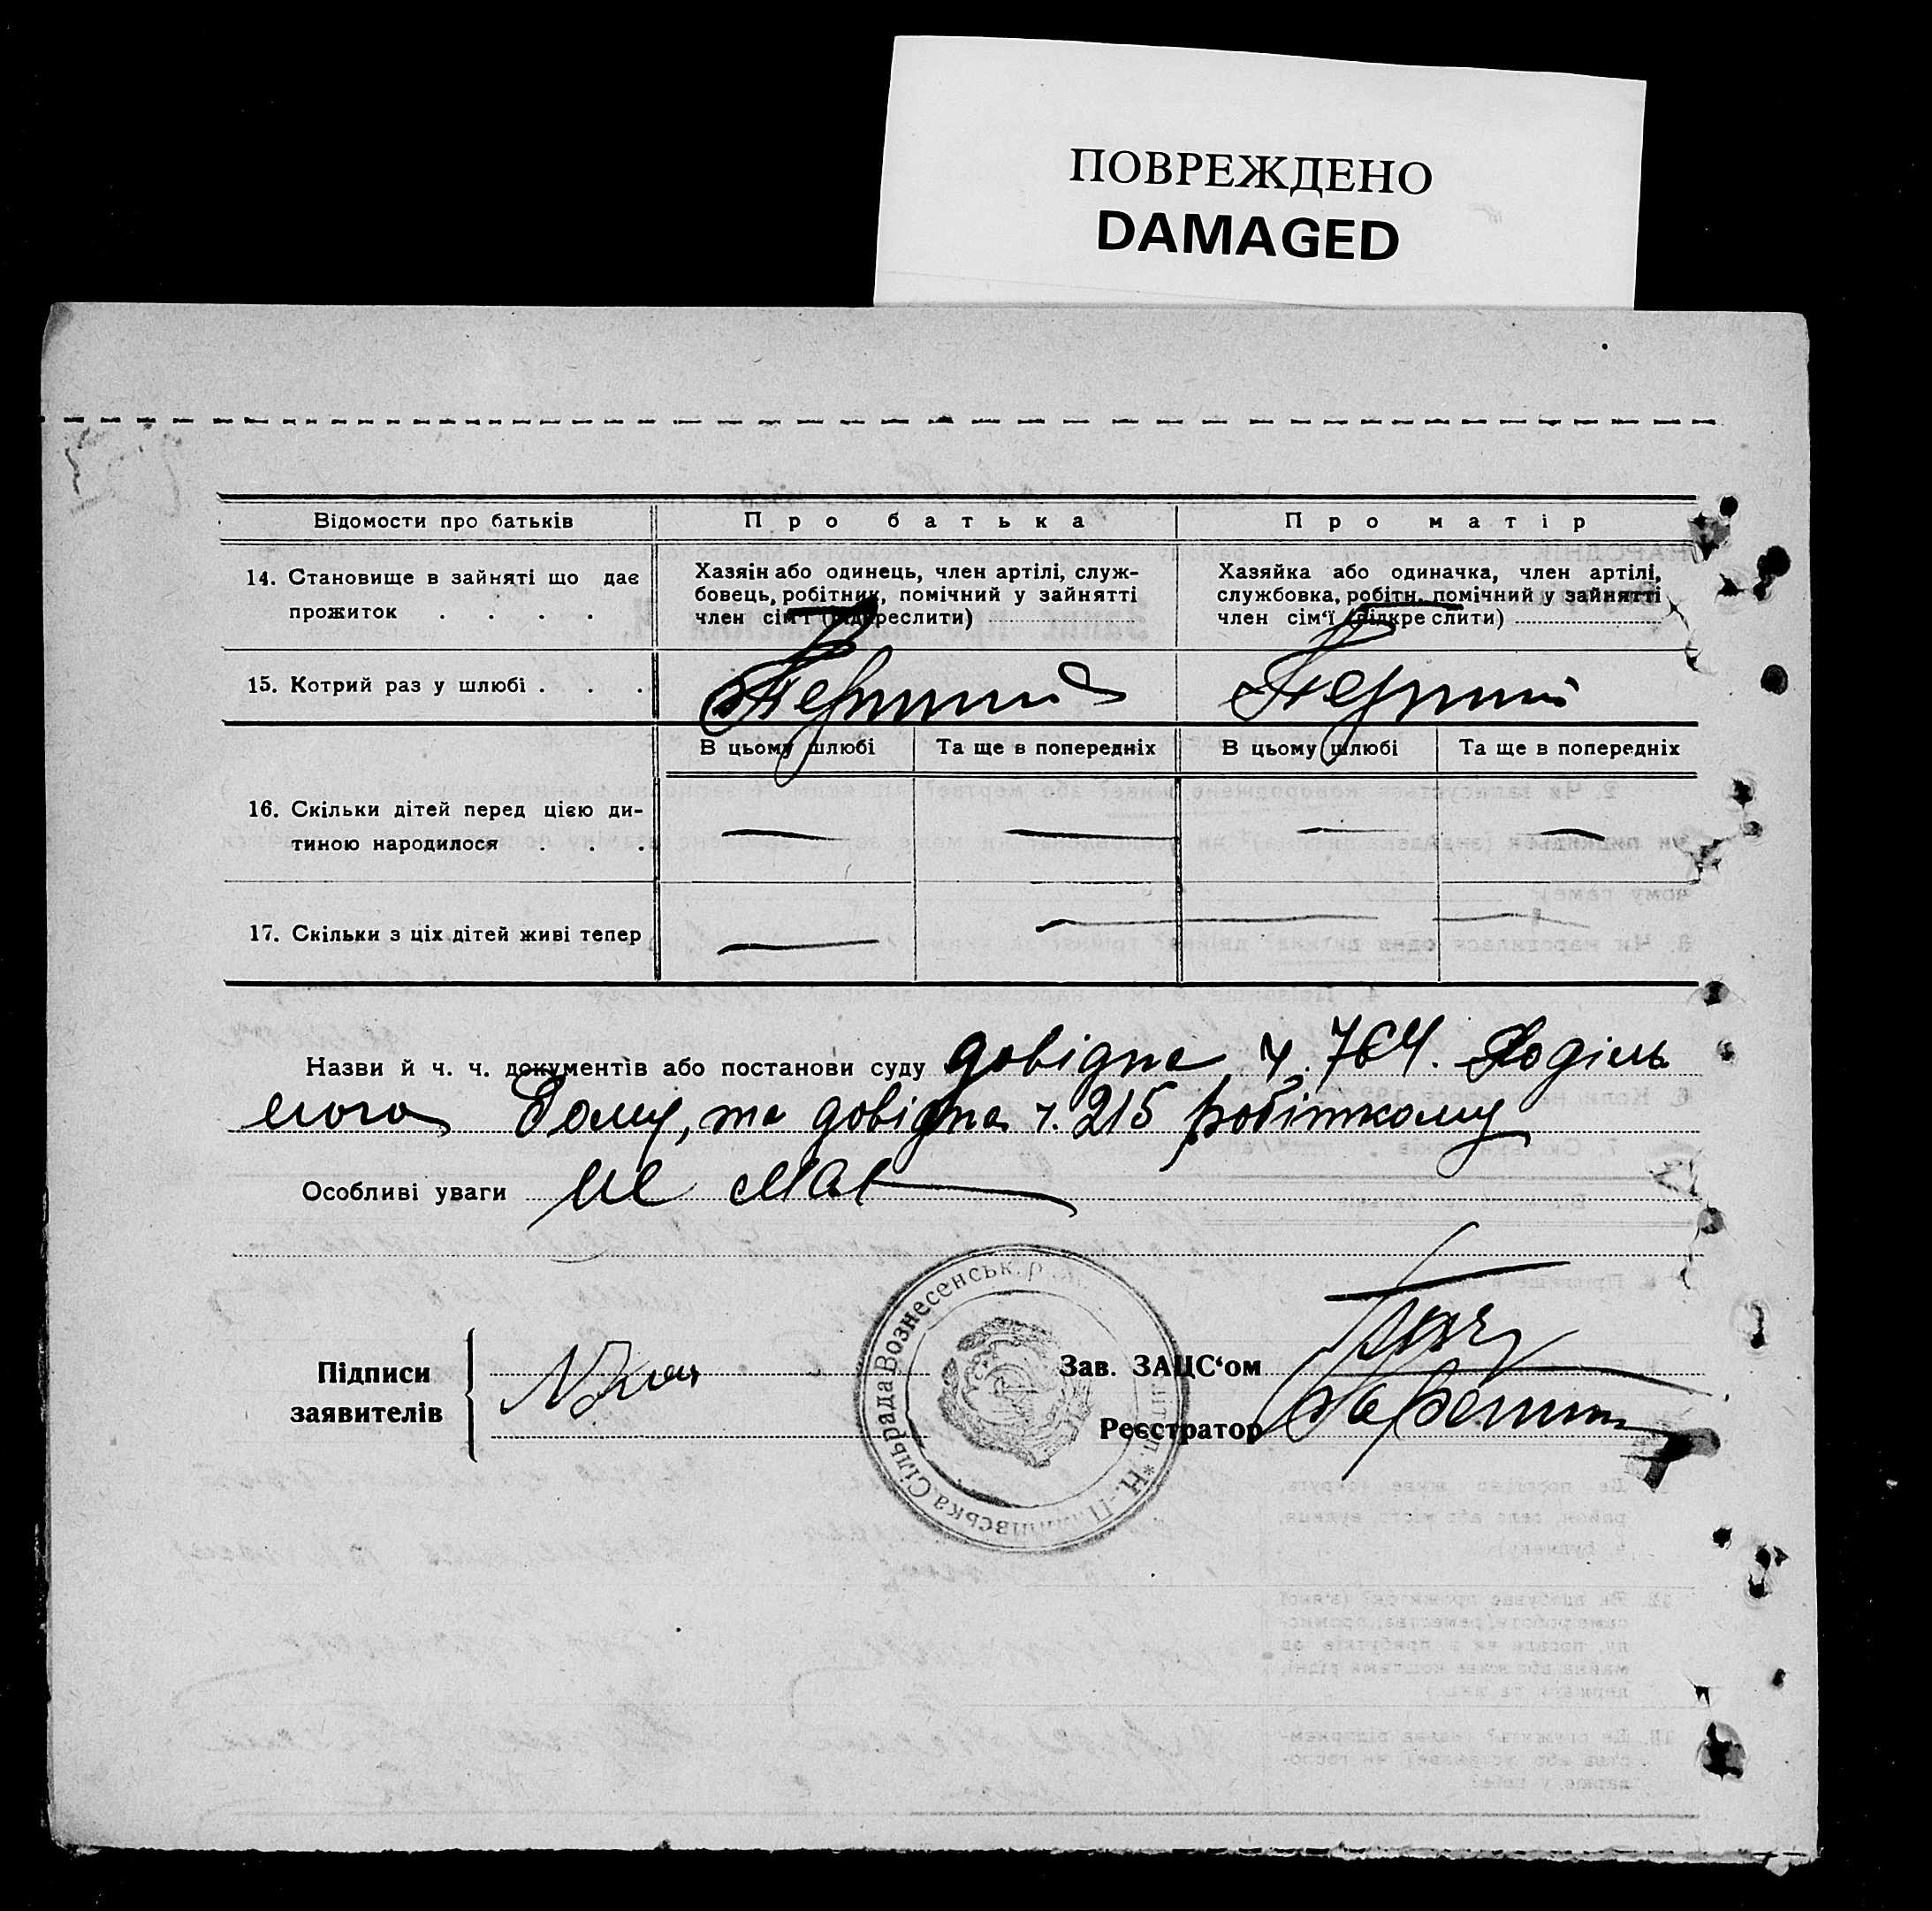 ПОВРЕЖДЕНО
DAMAGED
Відомости про батьків
Про батька
Про матір
14. Становище в зайняті що дає
прожиток . . . .
Хазяін або одинець, член артілі, служ-
бовець, робітник, помічний у зайнятті
член сім'ї (підкреслити)
Хазяйка або одиначка, член артілі,
службовка, робітн. помічний у зайнятті
член сім'ї (підкреслити)
15. Котрий раз у шлюбі . . .
Перший
Перший
В цьому шлюбі
Та ще в попередніх
В цьому шлюбі
Та ще в попередніх
16. Скільки дітей перед цією ди-
тиною народилося . . .
— — — —
17. Скільки з ціх дітей живі тепер
— — —
Назви й ч. ч. документів або постанови суду довідка ч. 764. Родiль
ного Дому, та довідка ч. 215 робіткому
Особливі уваги не має
Підписи
заявителів
Зав. ЗАЦС'ом
Реєстратор
Н.-П Сільрада Вознесенськ. р